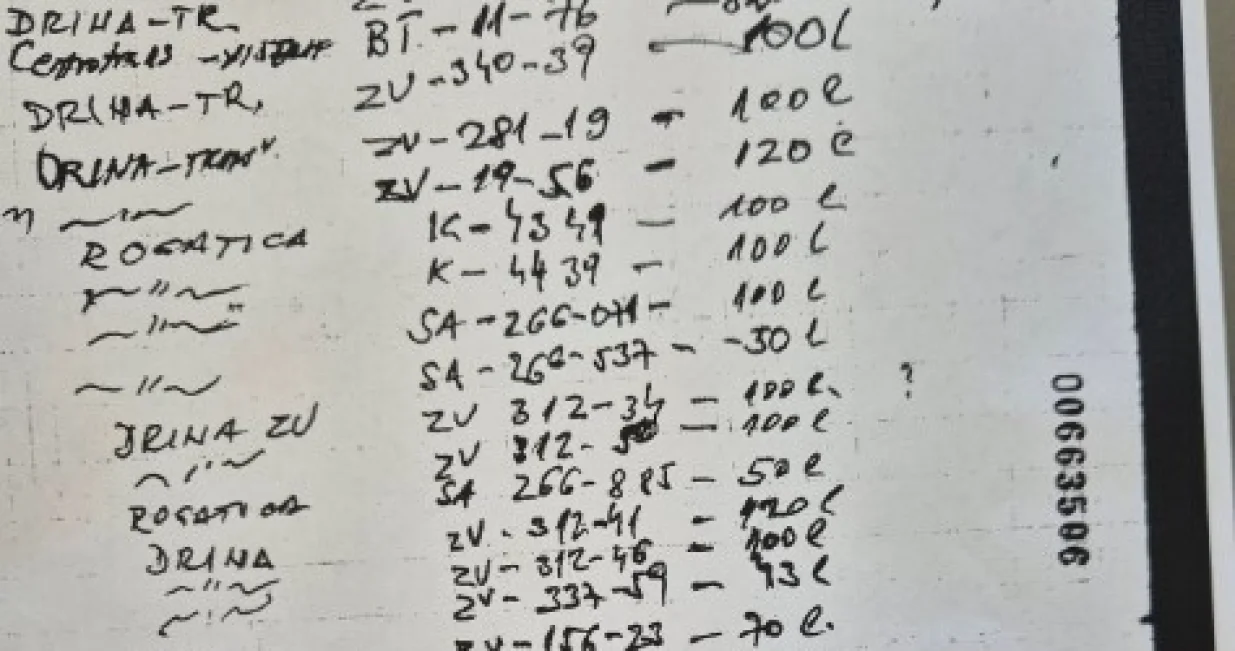 DRINA-TR. BT-11-76
Centrotrans ZV-340-39 - 100l
DRINA-TR. ZV-281-19 - 100l
DRINA-TRANS ZV-19-56 - 120l
~"~ K-4349 - 100l
ROGATICA K-4439 - 100l
~"~ SA-266-071- 100l
~"~ SA-266-537 - -50l
~"~ ZV 312-34 - 100l. ?
DRINA ZV ZV 312- - 100l
~"~ SA 266-885 - 50l
ROGATICA ZV-312-41 - 120l
DRINA ZV-312-46 - 100l
~"~ ZV-337-59 - 43l
~"~ ZV-156-23 - 70l.
00663506